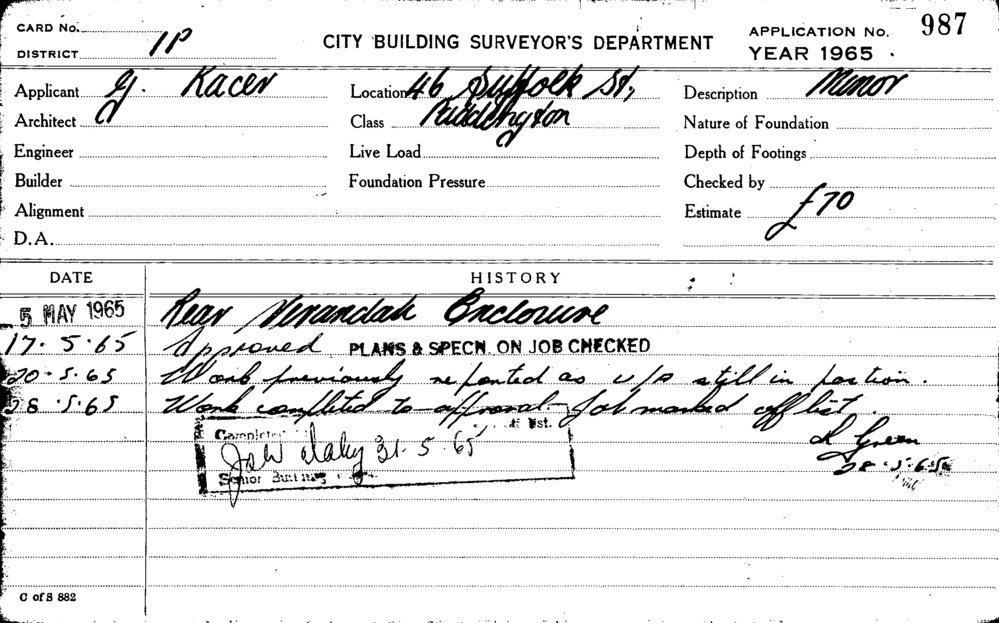 CARD No.
DISTRICT 1P
CITY BUILDING SURVEYOR'S DEPARTMENT
APPLICATION No. 987
YEAR 1965
Applicant G. Kacer
Location 46 Suffolk St,
Description Minor
Architect
Class Paddington
Nature of Foundation
Engineer
Live Load
Depth of Footings
Builder
Foundation Pressure
Checked by
Alignment
Estimate £70
D.A.
DATE HISTORY
5 MAY 1965 Rear Verandah Enclosure
17. 5. 65 Approved PLANS & SPECN. ON JOB CHECKED
20. 5. 65 Work previously reported as u/a still in position.
28. 5. 65 Work completed to approval. Job marked off list.
Green
28. 5. 65
31. 5. 65
Senior
C of S 882